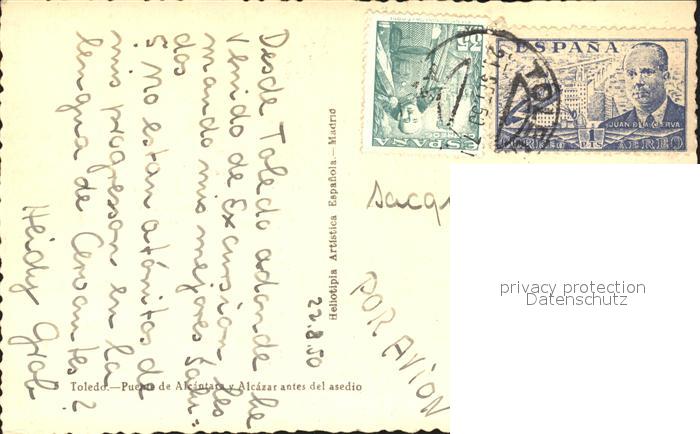 Desde Toledo adonde he
venido de Excursion les
mando mis mejores salu=
dos
5 No estan atónitos de
mis progresson en la
lengua de Cervantes?
Heidy Grob
22.8.50
Toledo.—Puente de Alcántara y Alcázar antes del asedio
Heliotipia Artística Española.—Madrid
POR AVION
35
CORREOS
ESPAÑA
ESPAÑA
JUAN DE LA CIERVA
1
PTS
CORREO
AEREO
privacy protection
Datenschutz